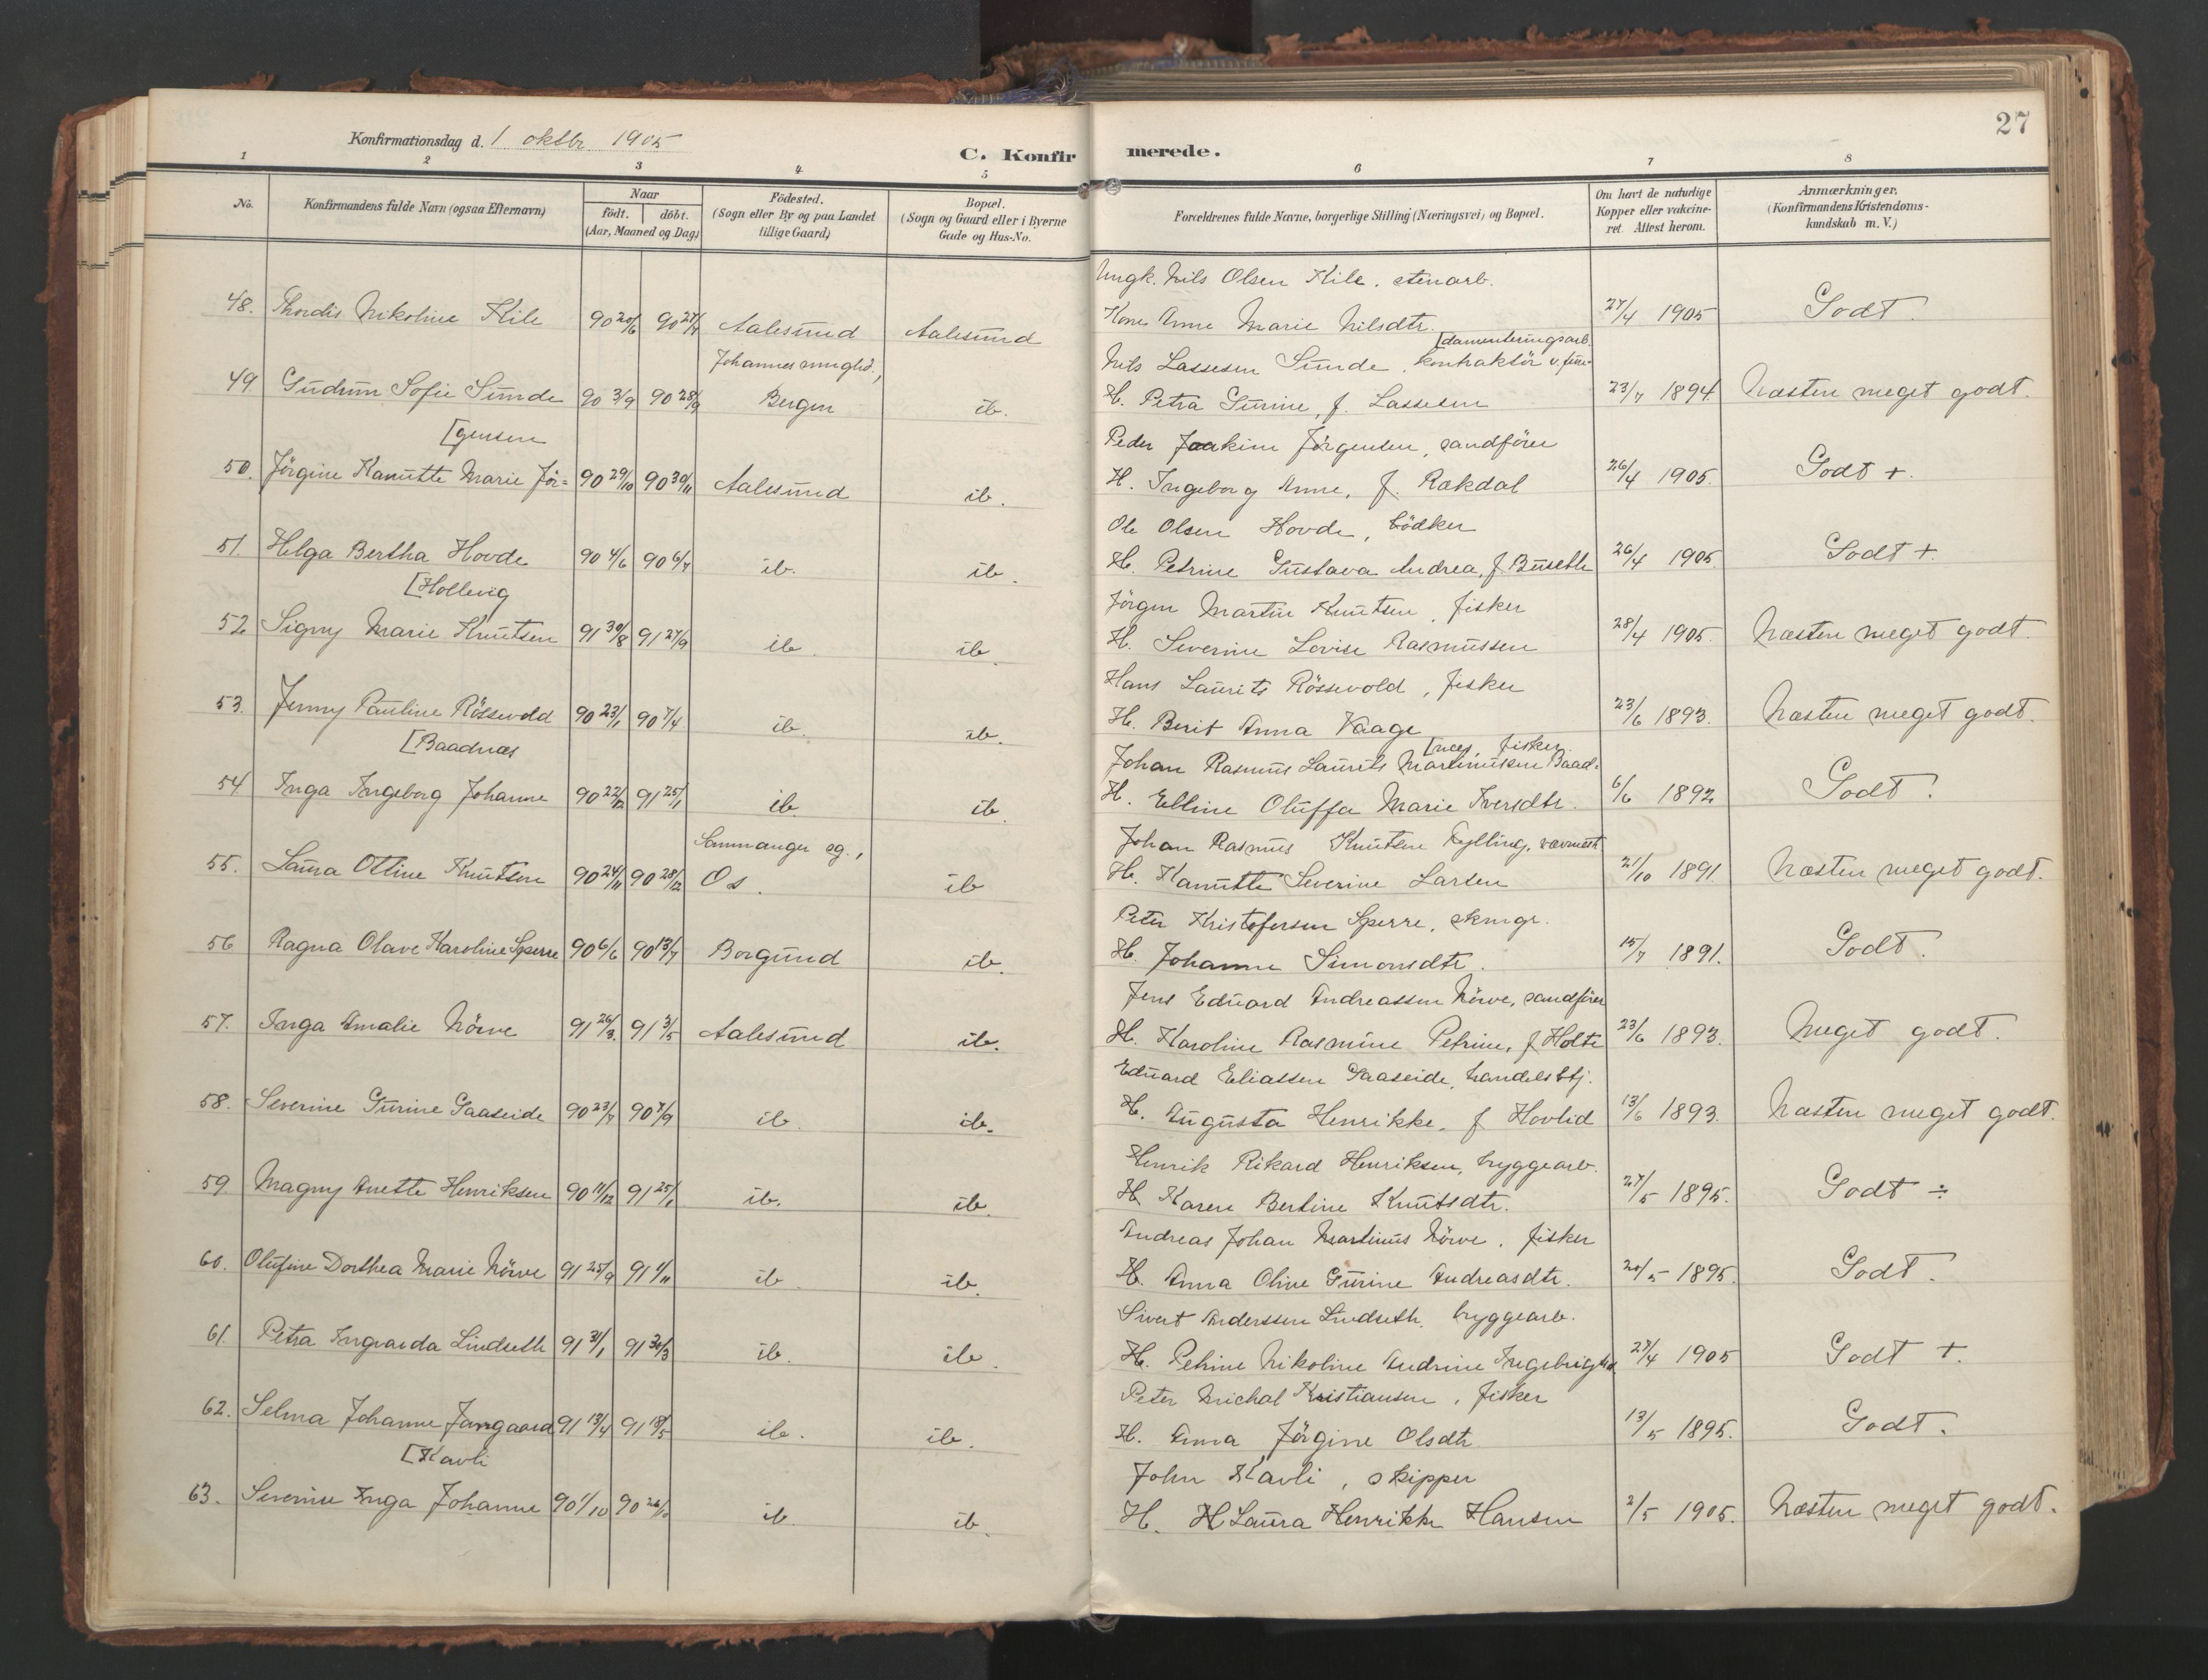 27
Konfirmationsdag d. 1 oktbr. 1905
C. Konfirmerede.
1 2 3 4 5 6 7 8
No. Konfirmandens fulde Navn (ogsaa Efternavn) Naar födt. döbt. (Aar, Maaned og Dag) Födested. (Sogn eller By og paa Landet tillige Gaard) Bopæl. (Sogn og Gaard eller i Byerne Gade og Hus-No. Forældrenes fulde Navne, borgerlige Stilling (Næringsvei) og Bopæl. Om havt de naturlige Kopper eller vakcineret. Attest herom. Anmærkninger, (Konfirmandens Kristendomskundskab m. V.)
Ungk. Nils Olsen Kile, stenarb.
48. Thordis Nikoline Kile 90 20/6 90 27/7 Aalesund Aalesund Kone Anne Marie Nilsdtr. 27/4 1905 Godt.
[damenteringsarb.
Johannes menighd., Nils Lassesen Sunde, kontraktör v. fun-
49. Gudrun Sofie Sunde 90 3/9 90 28/9 Bergen ib. H. Petra Gurine, f. Lassesen 23/7 1894 Næsten meget godt.
[gensen Peder Joakim Jörgensen, sandförer
50. Jörgine Kanutte Marie Jör= 90 29/10 90 30/11 Aalesund ib. H. Ingeborg Anne, f. Rakdal 26/4 1905. Godt +.
Ole Olsen Hovde, bödker
51. Helga Bertha Hovde 90 4/6 90 6/7 ib. ib. H. Petrine Gustava Andrea, f. Buseth 26/4 1905. Godt +.
[Hollevig Jörgen Martin Knutsen, fisker
52 Signy Marie Knutsen 91 30/8 91 27/9 ib. ib. H. Severine Lovise Rasmussen 28/4 1905. Næsten meget godt.
Hans Laurits Rössevold, fisker
53. Jenny Pauline Rössevold 90 23/1 90 7/4 ib. ib. H. Berit Anna Vaage 23/6 1893. Næsten meget godt.
[næs, fisker.
[Baadnæs Johan Rasmus Laurits Martinussen Baad-
54 Inga Ingeborg Johanne 90 22/12 91 25/1 ib. ib. H. Elline Oluffa Marie Iversdtr. 6/6 1892 Godt.
Sammanger sg., Johan Rasmus Knutsen Kylling,
55. Laura Otline Knutsen 90 24/11 90 28/12 Os. ib H. Kanutte Severine Larsen 21/10 1891. Næsten meget godt.
Peter Kristofersen Sperre, skmgr.
56. Ragna Olave Karoline Sperre 90 6/6 90 13/7 Borgund ib. H. Johanne Simonsdtr. 15/7 1891. Godt.
Jens Eduard Andreassen Nörve, sandförer
57. Inga Amalie Nörve 91 26/3. 91 3/5 Aalesund ib. H. Karoline Rasmine Petrine, f. Holte 23/6 1893. Meget godt.
Eduard Eliassen Gaaseide, handelsbtj.
58. Severine Gurine Gaaseide 90 23/7 90 7/9 ib. ib. H. Augusta Henrikke, f. Hovlid 13/6 1893. Næsten meget godt.
Henrik Rikard Henriksen, bryggearb.
59. Magny Anette Henriksen 90 11/12 91 25/1 ib. ib. H. Karen Bertine Knutsdtr. 27/5 1895. Godt ÷
Andreas Johan Martinus Nörve, fisker
60. Olufine Dorthea Marie Nörve 91 25/9 91 1/11 ib. ib. H. Anna Oline Gurine Andreasdtr. 20/5 1895. Godt.
Sivert Anderssen Lindseth, bryggearb.
61. Petra Ingvarda Lindseth 91 31/1 91 30/3 ib. ib. H. Petrine Nikoline Andrine Ingebrigtsd. 27/4 1905 Godt +.
Peter Michal Kristiansen, fisker
62. Selma Johanne Jangaard 91 13/4 91 18/5 ib. ib. H. Anna Jörgine Olsdtr 13/5 1895. Godt.
[Kavli John Kavli, skipper
63. Severine Inga Johanne 90 1/10 90 26/12 ib. ib. H. H Laura Henrikke Hansen 2/5 1905. Næsten meget godt.